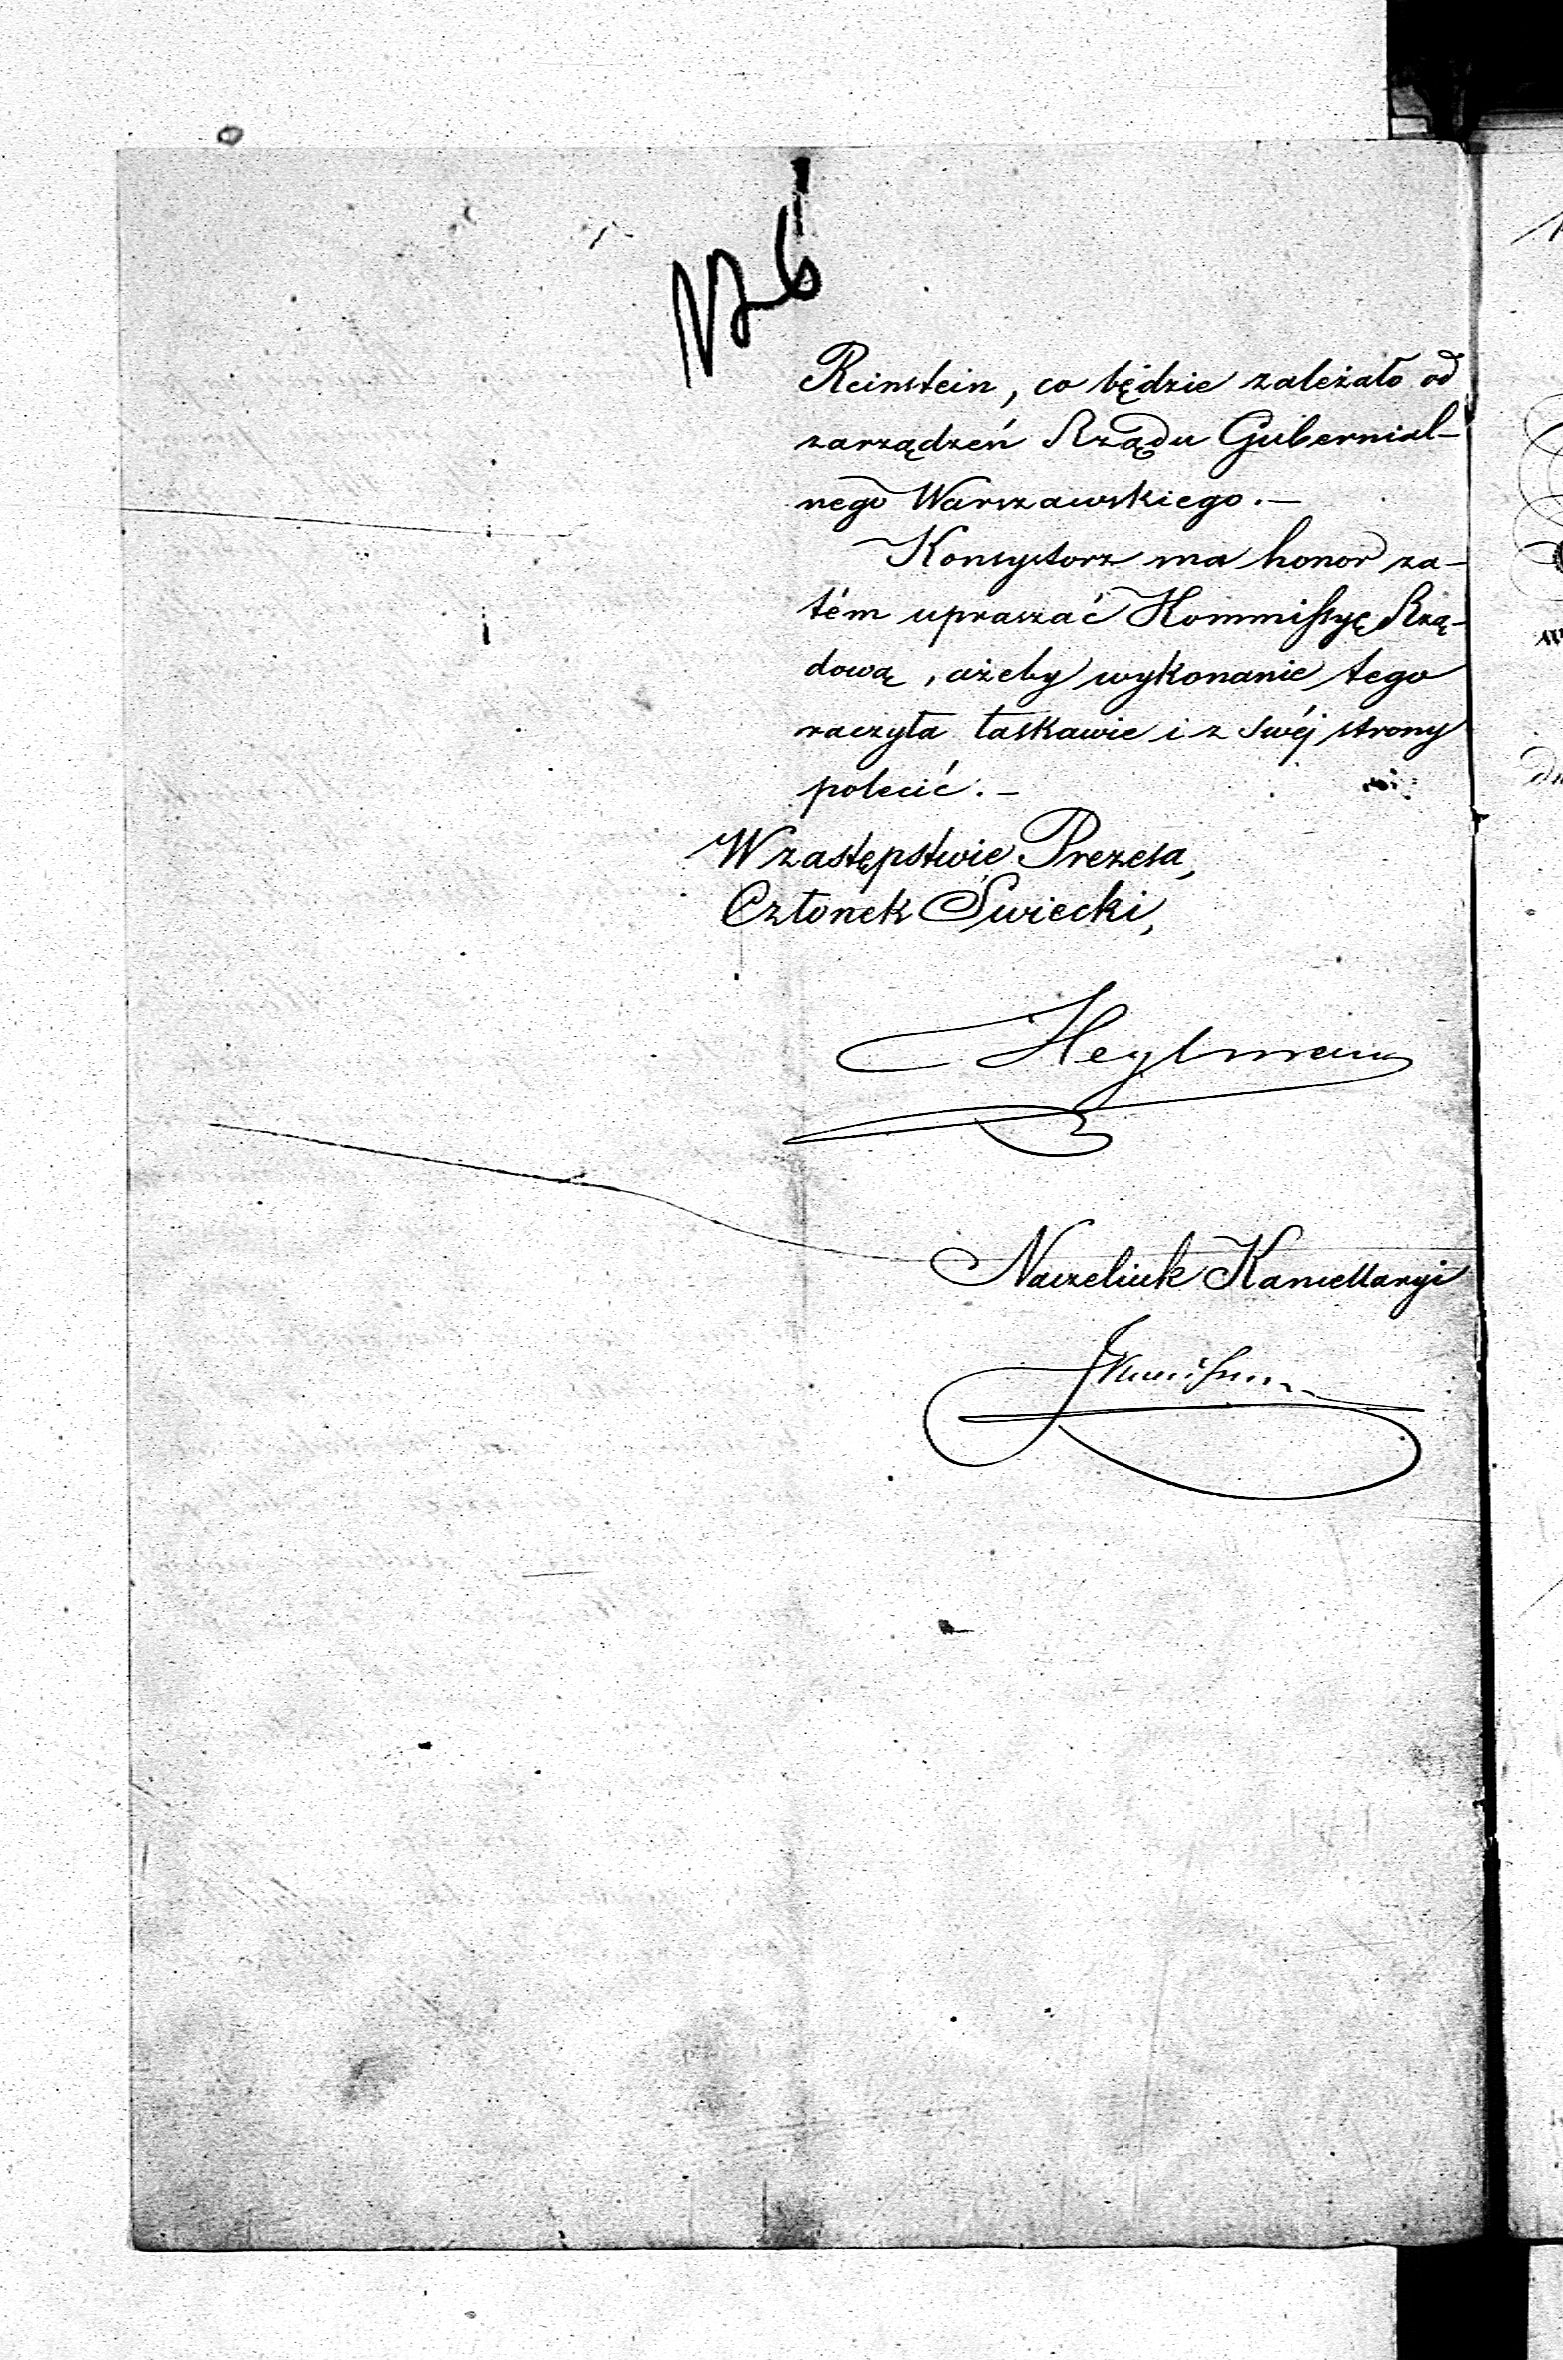 Reinstein, co będzie zależało od
zarządzeń Rządu Gubernial-
nego Warszawskiego.—
Konsystorz ma honor za-
tém upraszać Kommissyę Rzą-
dową, ażeby wykonanie tego
raczyła łaskawie i z swéj strony
polecić.—
W zastępstwie Prezesa,
Członek Świecki,
Heylmann
Naczelnik Kancellaryi